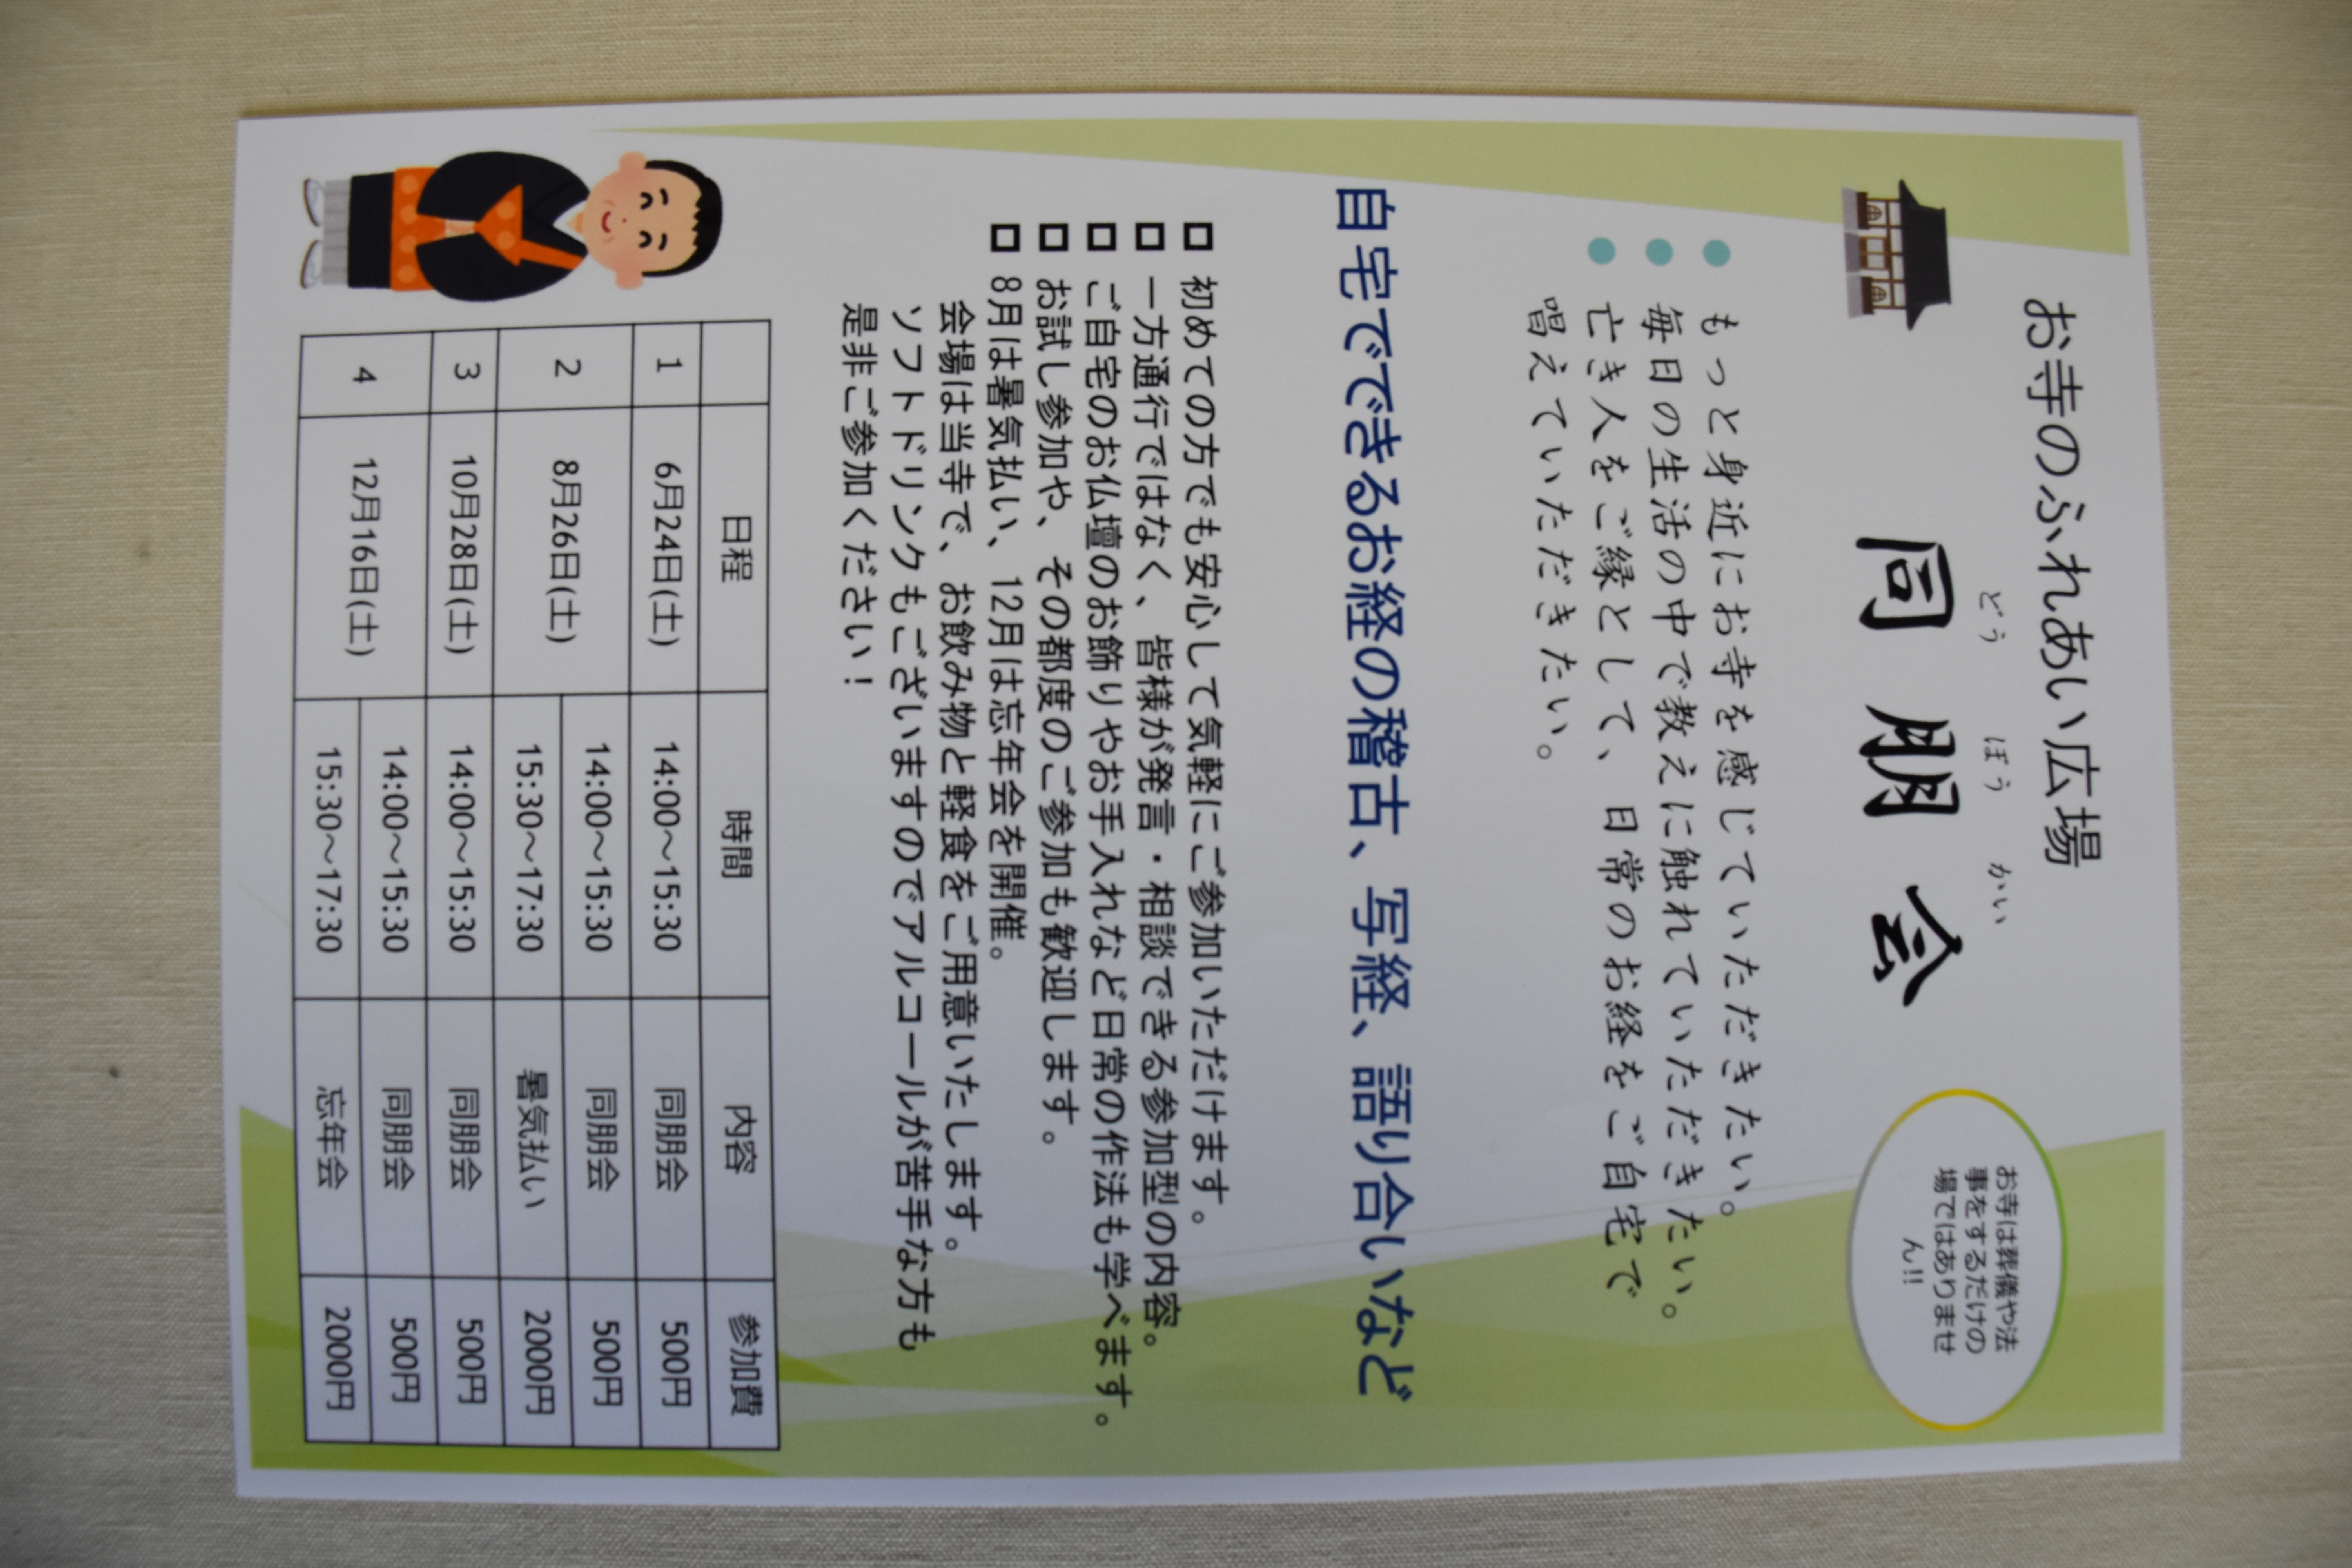 お寺のふれあい広場
どう ぼう かい
同朋会
お寺は葬儀や法
事をするだけの
場ではありませ
ん!!
● もっと身近にお寺を感じていただきたい。
● 毎日の生活の中で教えに触れていただきたい。
● 亡き人をご縁として、日常のお経をご自宅で
唱えていただきたい。
自宅でできるお経の稽古、写経、語り合いなど
□ 初めての方でも安心して気軽にご参加いただけます。
□ 一方通行ではなく、皆様が発言・相談できる参加型の内容。
□ ご自宅のお仏壇のお飾りやお手入れなど日常の作法も学べます。
□ お試し参加や、その都度のご参加も歓迎します。
□ 8月は暑気払い、12月は忘年会を開催。
会場は当寺で、お飲み物と軽食をご用意いたします。
ソフトドリンクもございますのでアルコールが苦手な方も
是非ご参加ください！
日程 時間 内容 参加費
1 6月24日(土) 14:00～15:30 同朋会 500円
2 8月26日(土) 14:00～15:30 同朋会 500円
15:30～17:30 暑気払い 2000円
3 10月28日(土) 14:00～15:30 同朋会 500円
4 12月16日(土) 14:00～15:30 同朋会 500円
15:30～17:30 忘年会 2000円